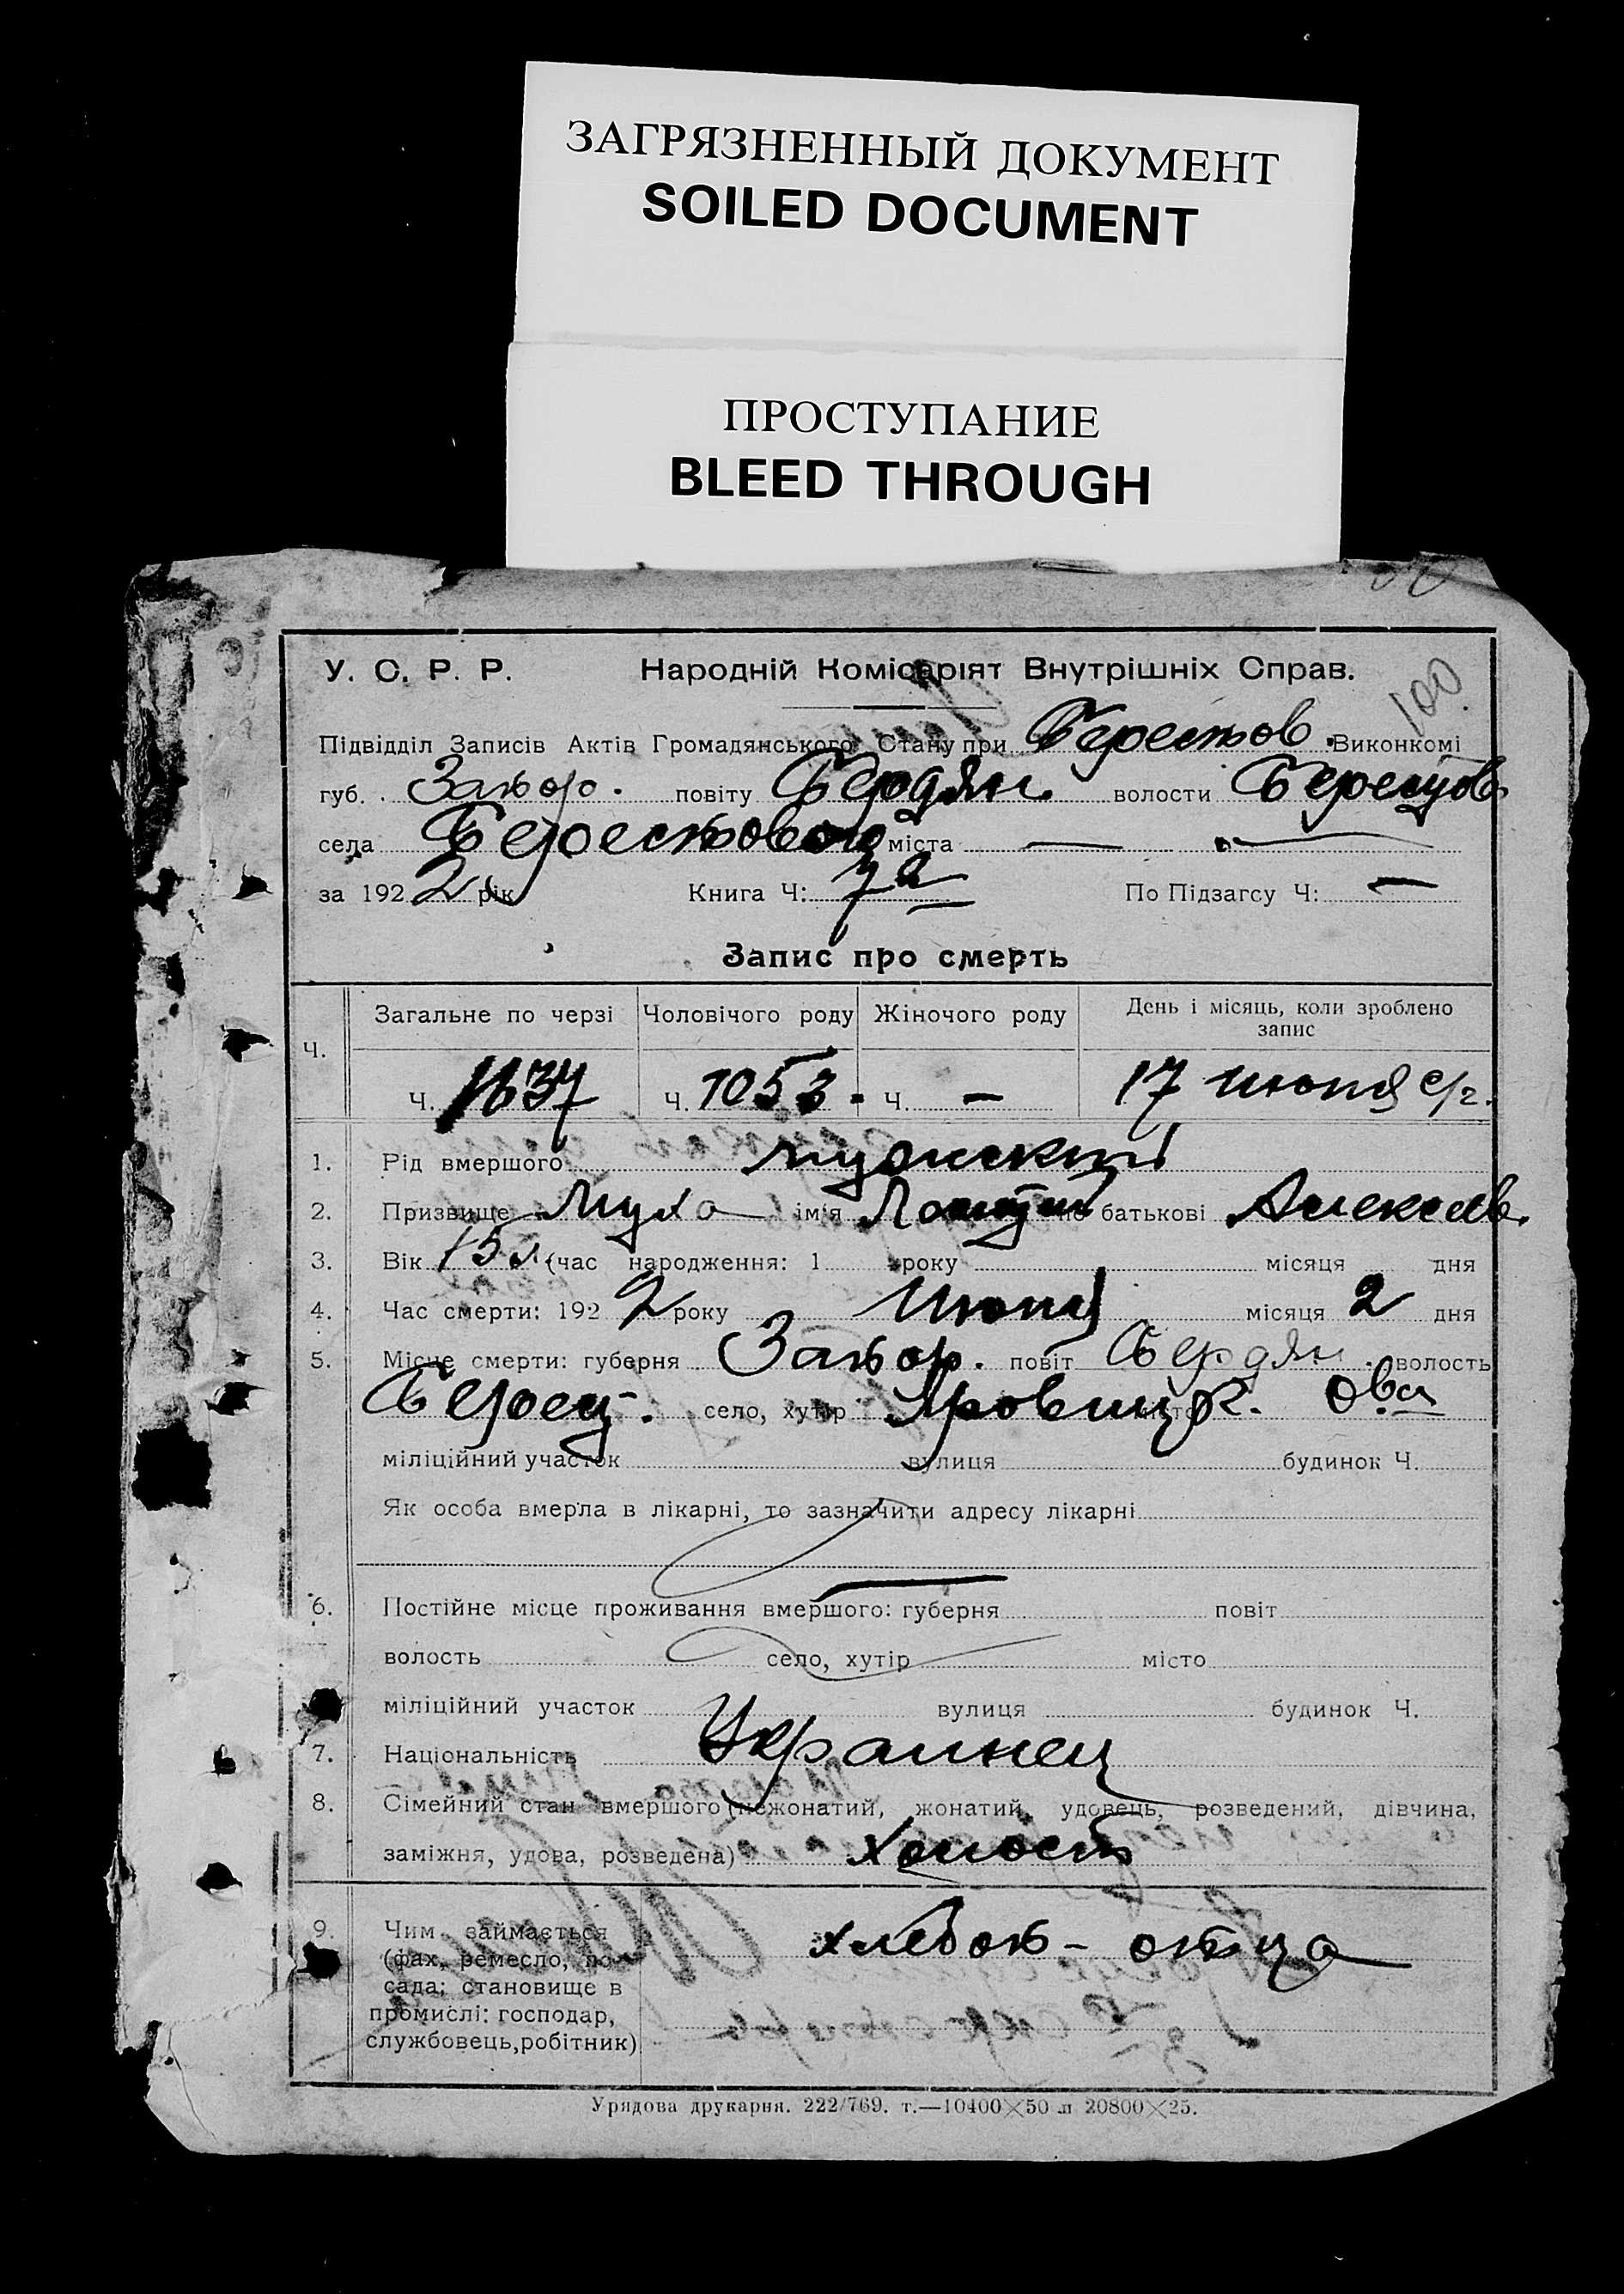 ЗАГРЯЗНЕННЫЙ ДОКУМЕНТ
SOILED DOCUMENT
ПРОСТУПАНИЕ
BLEED THROUGH
100
У. С. Р. Р. Народній Комісаріят Внутрішніх Справ.
Підвідділ Записів Актів Громадянського Стану при Берестов. Виконкомі
губ. Запор. повіту Бердян. волости Берестов.
села Берестовое міста —
за 1922 рік Книга Ч: 7а По Підзагсу Ч: —
Запис про смерть
Ч. Загальне по черзі Чоловічого роду Жіночого роду День і місяць, коли зроблено запис
Ч. 1637 Ч. 1053 Ч. — 17 июня с/г.
1. Рід вмершого мужский
2. Призвище Муха ім'я по батькові Алексеев.
3. Вік 15 л (час народження: 1 року місяця дня
4. Час смерти: 1922 року Июня місяця 2 дня
5. Місце смерти: губерня Запор. повіт Бердян. волость
Берест. село, хутір місто
міліційний участок вулиця будинок Ч.
Як особа вмерла в лікарні, то зазначити адресу лікарні
6. Постійне місце проживання вмершого: губерня повіт
волость село, хутір місто
міліційний участок вулиця будинок Ч.
7. Національність Украинец
8. Сімейний стан вмершого (нежонатий, жонатий, удовець, розведений, дівчина,
заміжня, удова, розведена) холост
9. Чим займається хлебоп- отца
(фах, ремесло, по-
сада; становище в
промислі: господар,
службовець, робітник)
Урядова друкарня. 222/769. т.—10400×50 л 20800×25.